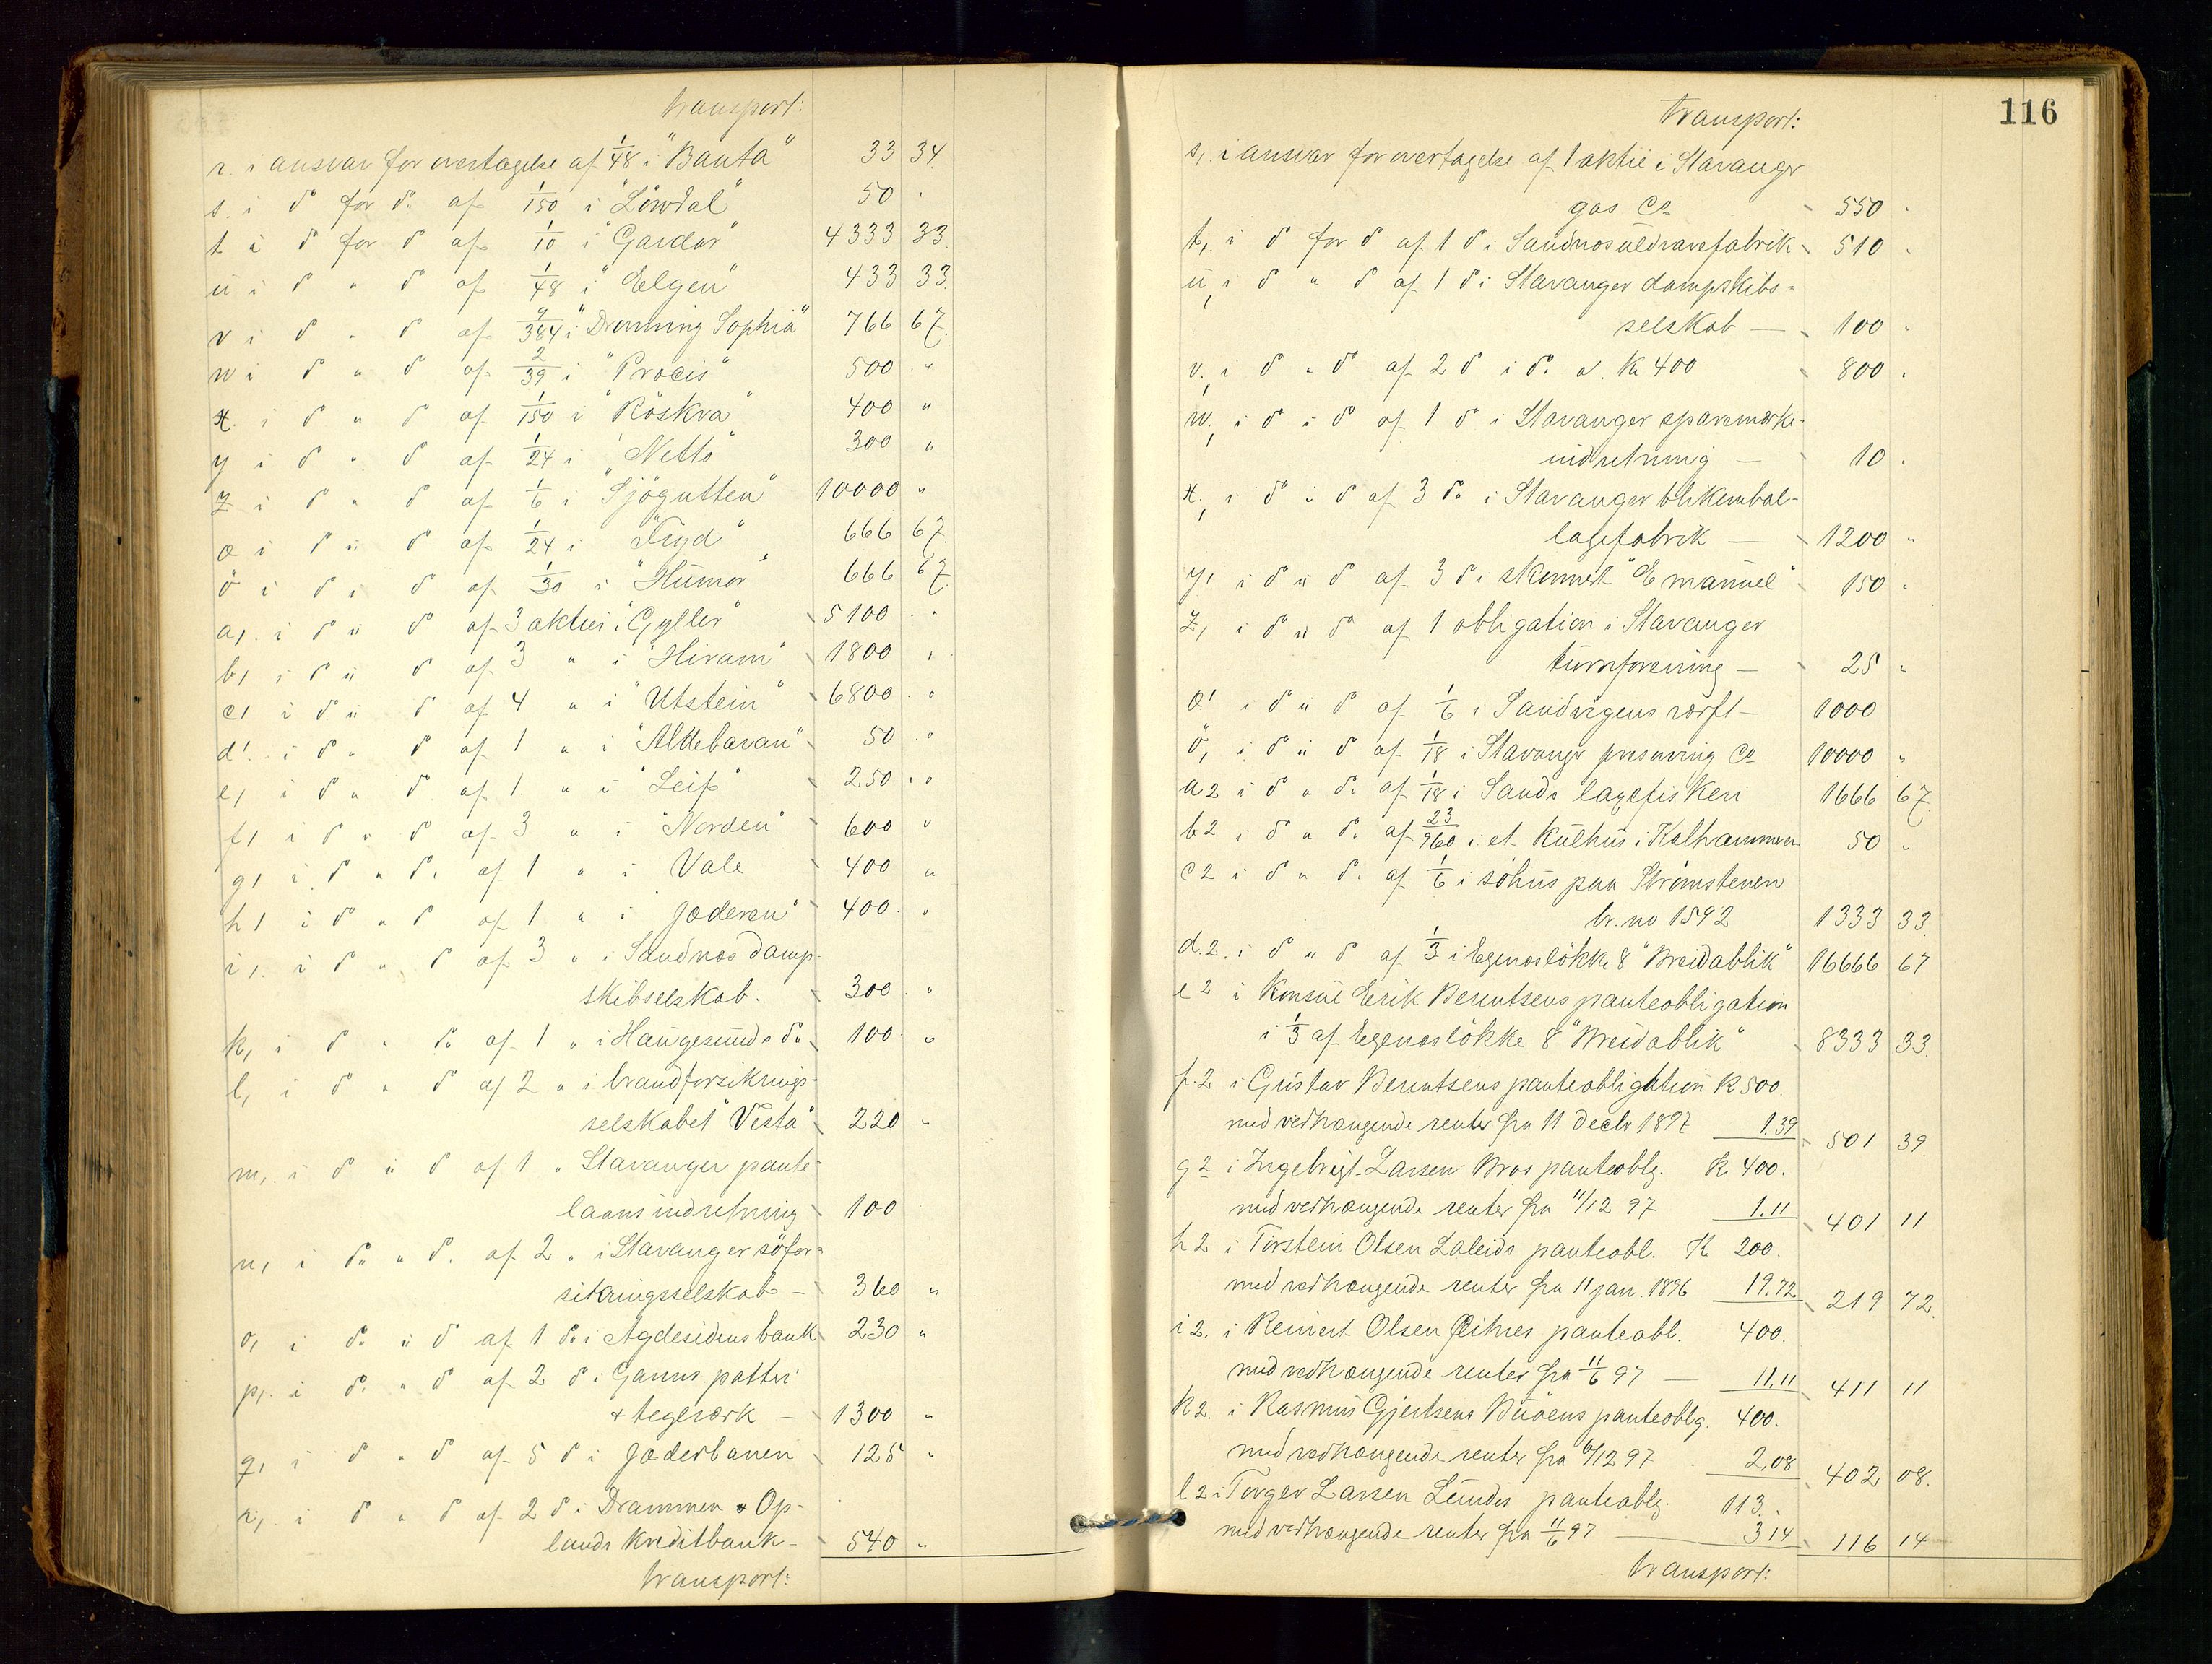 transport:
r. i ansvar for overtagelse af 1/48 i "Banta" 33 34.
s. i do for do af 1/150 i "Löwdal" 50 "
t i do for do af 1/10 i "Gardar" 4333 33.
u i do " do af 1/48 i "Elgen" 433 33.
v i do " do af 9/384 i "Dronning Sophia" 766 67.
w i do " do af 2/39 i "Procis" 500 "
x. i do " do af 1/150 i "Röskva" 400 "
y i do " do af 1/24 i "Netto" 300 "
z i do " do af 1/6 i "Sjøgutten" 10000 "
æ i do " do af 1/24 i "Fryd" 666 67.
ö i do " do af 1/30 i "Humor" 666 67.
a, i do " do af 3 aktier i "Gyller" 5100 "
b, i do " do af 3 " i "Hiram" 1800 "
c, i do " do af 4 " i "Utstein" 6800 "
d, i do " do af 1 " i "Aldebaran" 50 "
e, i do " do af 1 " i "Leif" 250 "
f, i do " do af 3 " i "Norden" 600 "
g, i do " do af 1 " i Vale 400 "
h, i do " do af 1 " i "Jæderen" 400 "
i, i do " do af 3 " i Sandnæs damp-
skibselskab. 300 "
k, i do " do af 1 " i Haugesunds do 100 "
l, i do " do af 2 " i brandforsikrings-
selskabet "Vesta" 220 "
m, i do " do af 1 " Stavanger pante-
laans indretning 100
n, i do " do af 2 " i Stavanger söfor-
sikringsselskab - 360 "
o, i do " do af 1 do i Agdesidens bank 230 "
p, i do " do af 2 do i Ganns potteri
& teglværk - 1300 "
q, i do " do af 5 do i Jæderbanen 125 "
r, i do " do af 2 do i Drammen & Op-
lands Kreditbank - 540 "
transport:
116
transport:
s, i ansvar for overtagelse af 1 aktie i Stavanger
gas Co 550 "
t, i do for do af 1 do i Sandnæs uldvarefabrik 510 "
u, i do " do af 1 do i Stavanger dampskibs-
selskab - 100 "
v, i do " do af 2 do i do a. Kr 400 800 "
w, i do " do af 1 do i Stavanger sparemærke-
indretning - 10 "
x, i do " do af 3 do i Stavanger blikembal-
lagefabrik - 1200 "
y, i do " do af 3 do i skonnert "Emanuel" 150 "
z, i do " do af 1 obligation i Stavanger
turnforening - 25 "
æ, i do " do af 1/6 i Sandvigens værft - 1000
ö, i do " do af 1/18 i Stavanger preserving Co 10000 "
a2 i do " do af 1/18 i Sands laxefiskeri 1666 67.
b2 i do " do af 23/960 i et Kulhus i Kalhammeren 50 "
c2 i do " do af 1/6 i söhus paa Strömstenen
br. no 1592 1333 33.
d.2. i do " do af 1/3 i Egenæslökke 8 "Breidablik" 16666 67
e2 i Konsul Erik Berentsens panteobligation
i 1/3 af Egenæslökke 8 "Breidablik" 8333 33.
f.2 i Gustav Berentsens panteobligation K 500.
med vedhængende renter fra 11 decbr 1897 1.39 501 39.
g2 i Ingebrigt Larsen Bros panteoblg. K 400.
med vedhængende renter fra 11/12 97 1.11 401 11
h2 i Torstein Olsen Laleids panteobl. K 200.
med vedhængende renter fra 11 jan. 1896 19.72 219 72.
i2. i Reinert Olsen panteobl. 400.
med vedhængende renter fra 11/6 97 - 11.11 411 11
k2. i Rasmus Gjertsens Buöens panteoblg. 400.
med vedhængende renter fra 6/12 97 2,08 402 08.
l2 i Torger Larsen Lundes panteoblg. 113.
med vedhængende renter fra 11/6 97 3 14 116 14
transport: